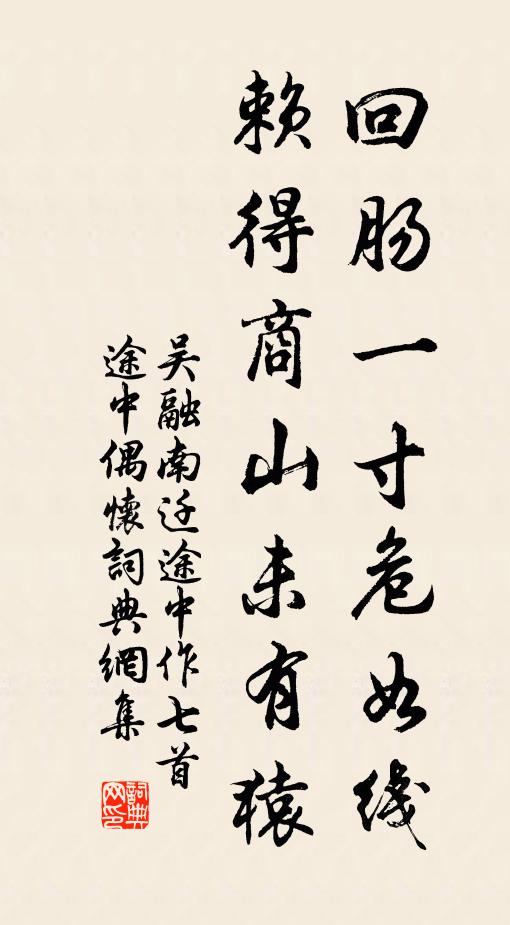 回肠一寸危如线
赖得商山未有猿
吴融南迁途中作七首
途中偶懷詞典網集
詞典
网印